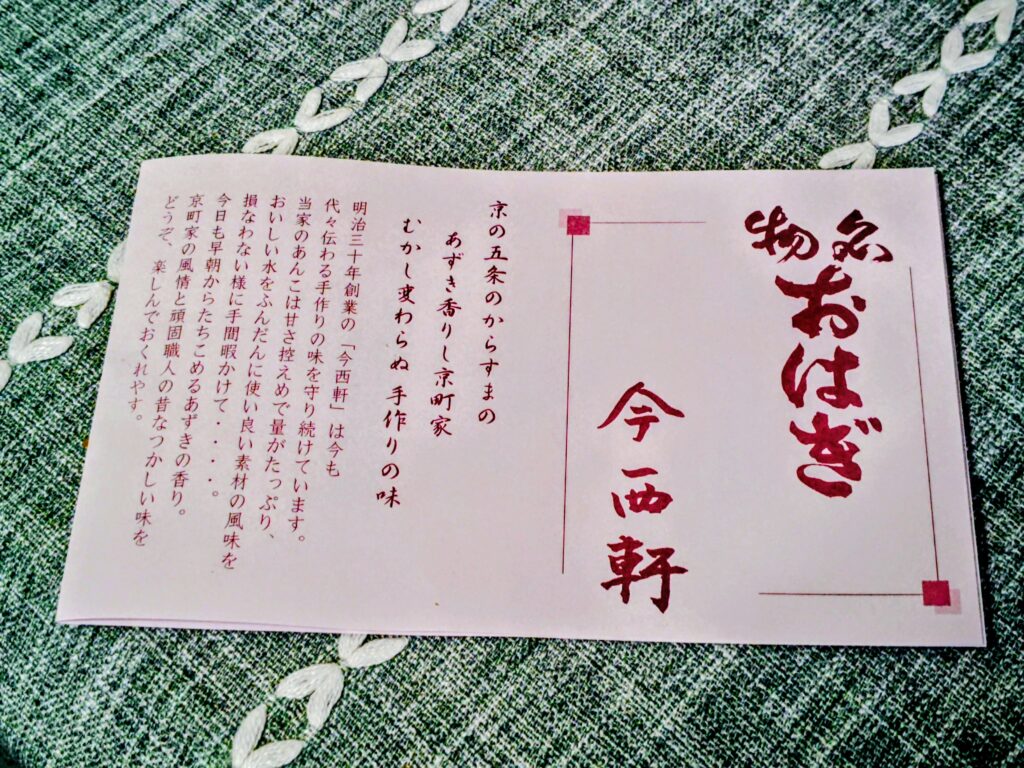 名物
おはぎ
今西軒
京の五条のからすまの
あずき香りし京町家
むかし変わらぬ手作りの味
明治三十年創業の「今西軒」は今も
代々伝わる手作りの味を守り続けています。
当家のあんこは甘さ控えめで量がたっぷり、
おいしい水をふんだんに使い良い素材の風味を
損なわない様に手間暇かけて・・・・。
今日も早朝からたちこめるあずきの香り。
京町家の風情と頑固職人の昔なつかしい味を
どうぞ、楽しんでおくれやす。